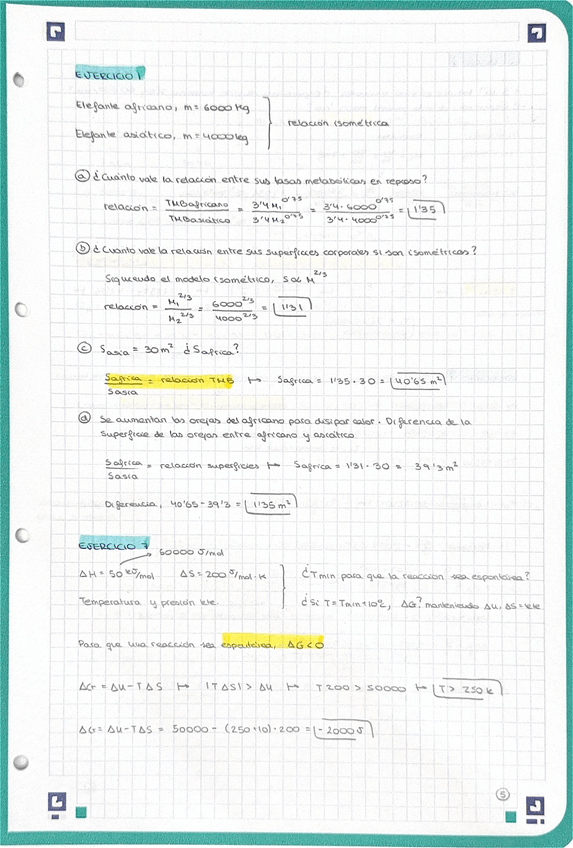 EJERCICIO 1
Elefante africano, m = 6000 kg
Elefante asiático, m = 4000 kg
relación isométrica
a ¿Cuánto vale la relación entre sus tasas metabólicas en reposo?
relación = TMBafricano / TMBasiático = 3'4 M₁^0'75 / 3'4 M₂^0'75 = 3'4 · 6000^0'75 / 3'4 · 4000^0'75 = 1'35
b ¿Cuánto vale la relación entre sus superficies corporales si son isométricas?
Siguiendo el modelo isométrico, S ∝ M^2/3
relación = M₁^2/3 / M₂^2/3 = 6000^2/3 / 4000^2/3 = 1'31
c Sasia = 30 m² ¿Safrica?
Safrica / Sasia = relación TMB ↦ Safrica = 1'35 · 30 = 40'65 m²
d Se aumentan las orejas del africano para disipar calor. Diferencia de la
superficie de las orejas entre africano y asiático
Safrica / Sasia = relación superficies ↦ Safrica = 1'31 · 30 = 39'3 m²
Diferencia, 40'65 - 39'3 = 1'35 m²
EJERCICIO 7
50000 J/mol
ΔH = 50 kJ/mol ΔS = 200 J/mol·K
¿Tmin para que la reacción sea espontánea?
Temperatura y presión kte.
¿Si T = Tmin + 10ºC, ΔG? manteniendo ΔH, ΔS = kte
Para que una reacción sea espontánea, ΔG < 0
ΔG = ΔH - TΔS ↦ |TΔS| > ΔH ↦ T 200 > 50000 ↦ T > 250 k
ΔG = ΔH - TΔS = 50000 - (250 + 10) · 200 = -2000 J
5